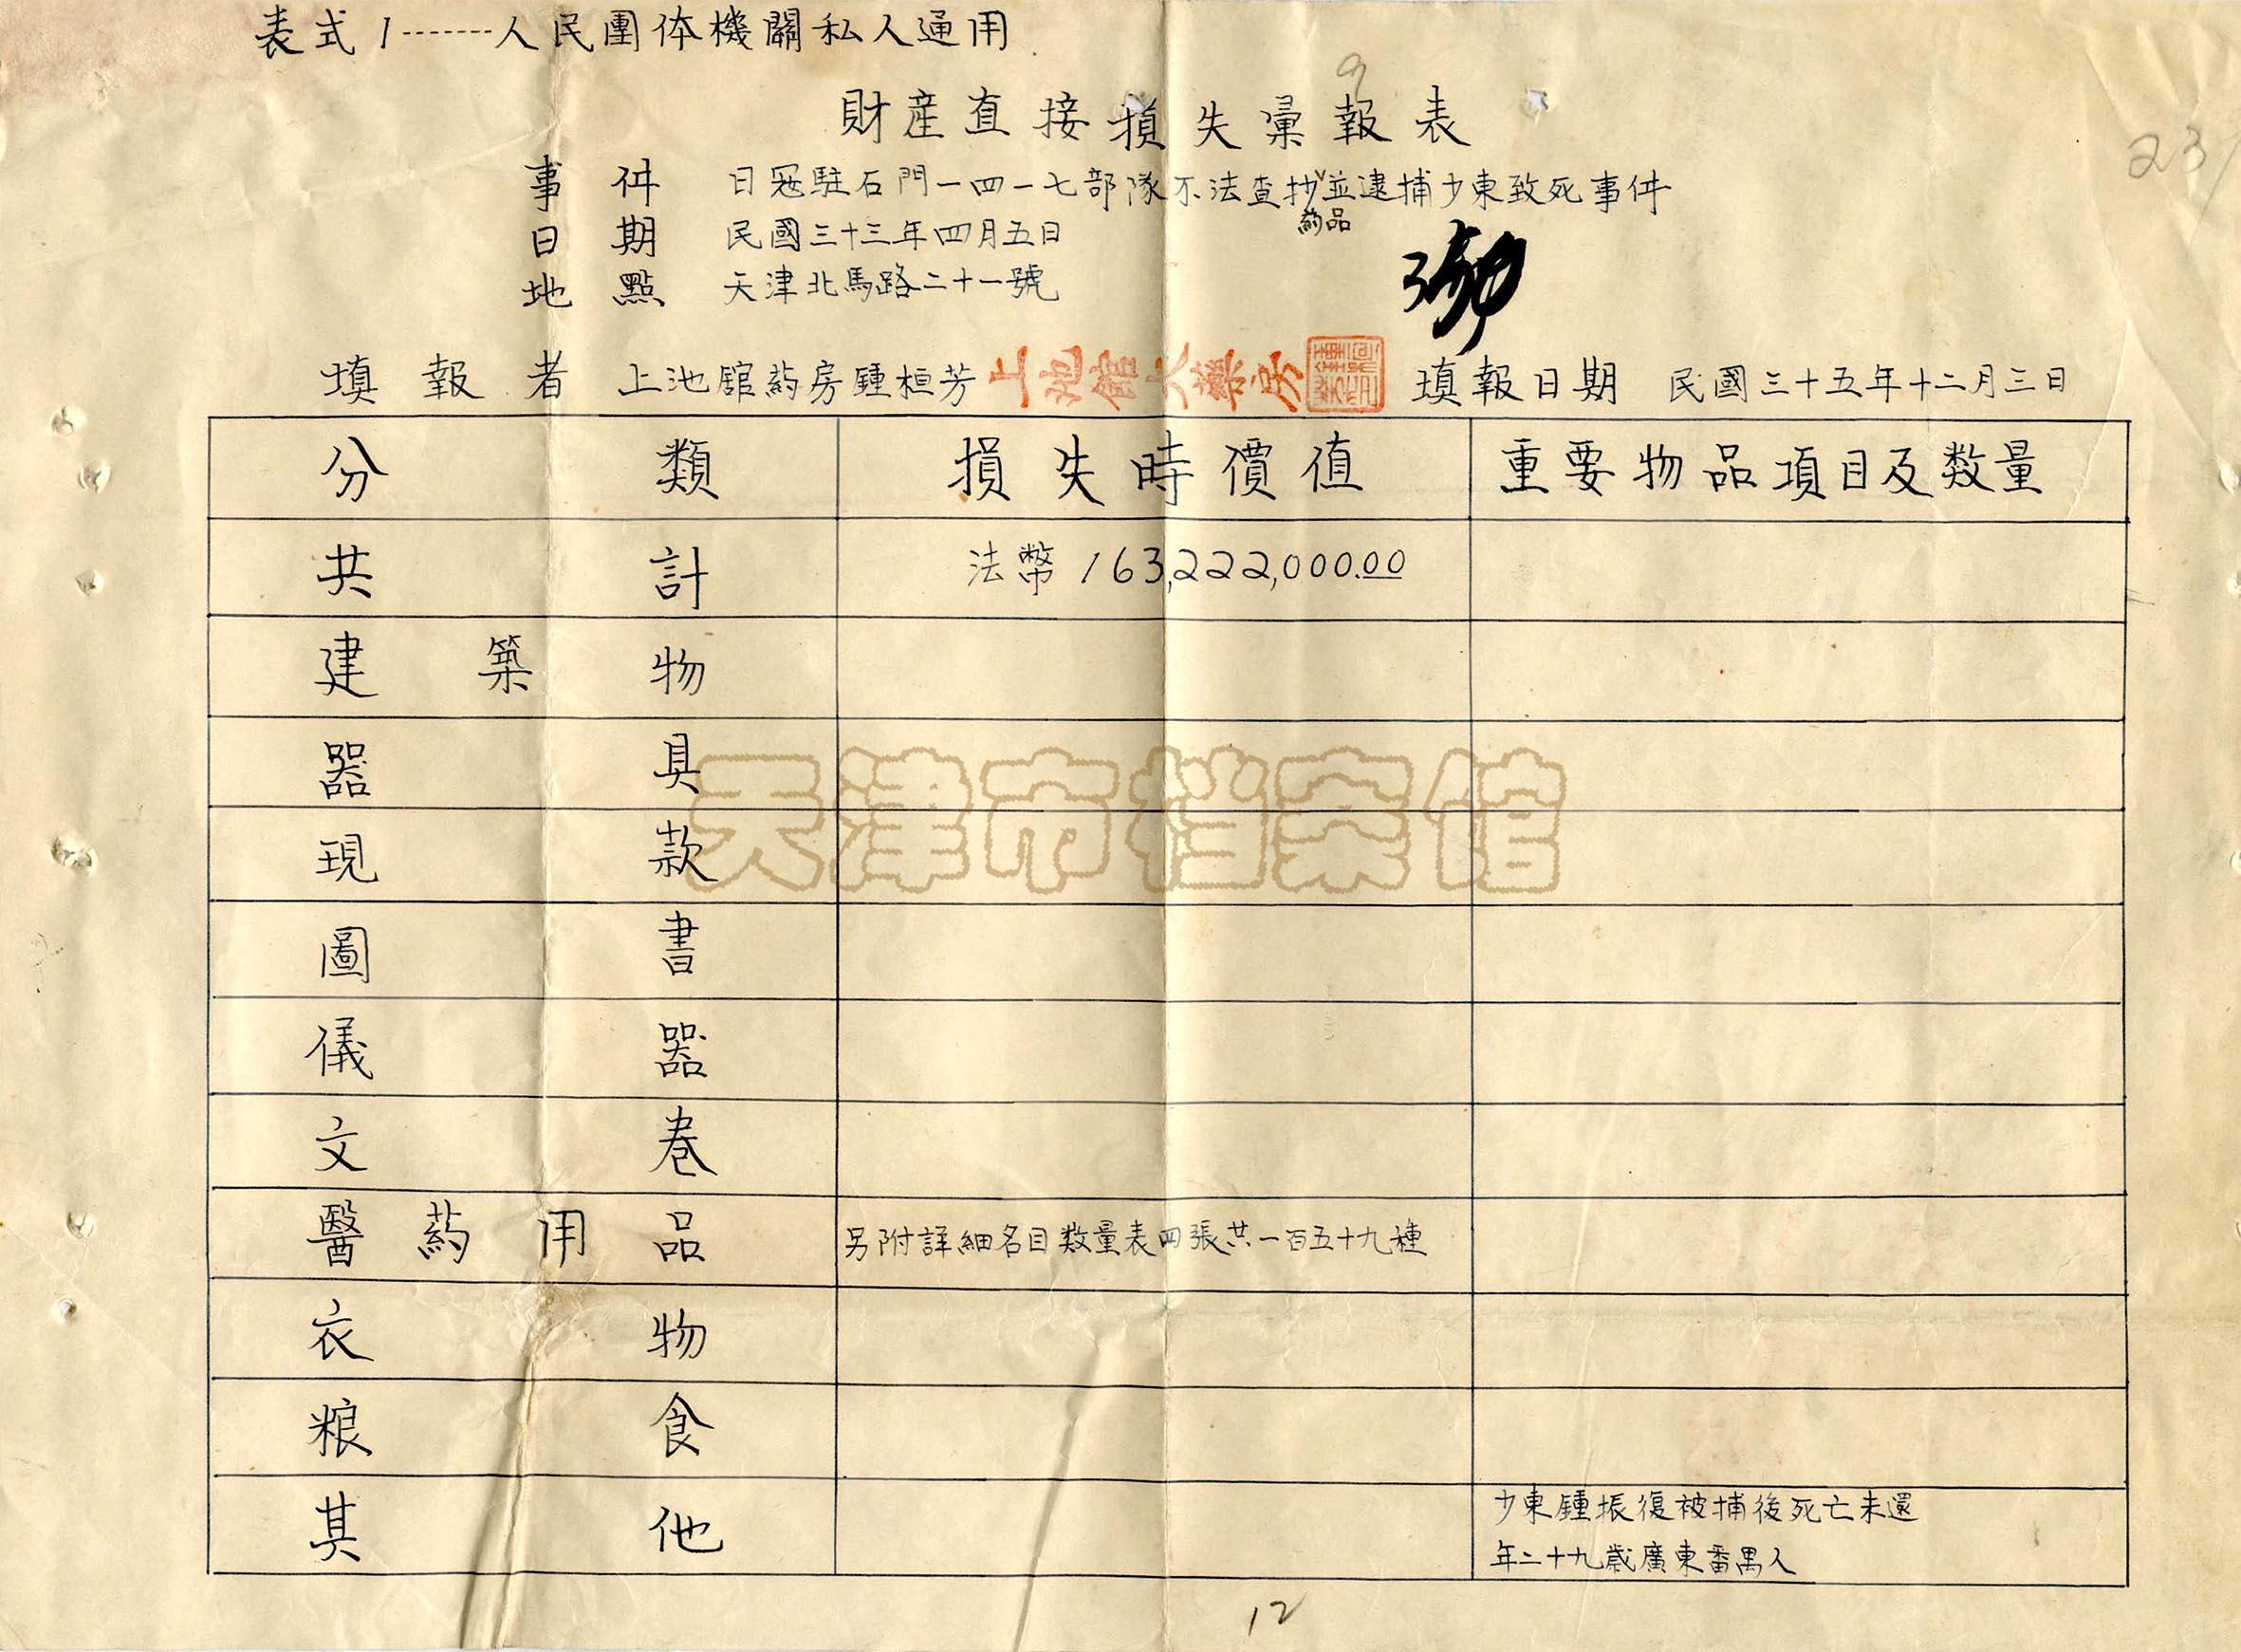 表式1-------人民團体機關私人通用
9
財產直接損失彙報表
23
事件 日冦駐石門一四一七部隊不法查抄並逮捕少東致死事件
药品
日期 民國三十三年四月五日
地點 天津北馬路二十一號
填報者 上池舘药房鍾桓芳 上池館大藥房 填報日期 民國三十五年十二月三日
分類 損失時價值 重要物品項目及数量
共計 法幣 163,222,000.00
建築物
器具
天津市档案馆
現款
圖書
儀器
文卷
醫药用品 另附詳細名目数量表四張共一百五十九種
衣物
粮食
其他 少東鍾振復被捕後死亡未還
年二十九歲廣東番禺人
12